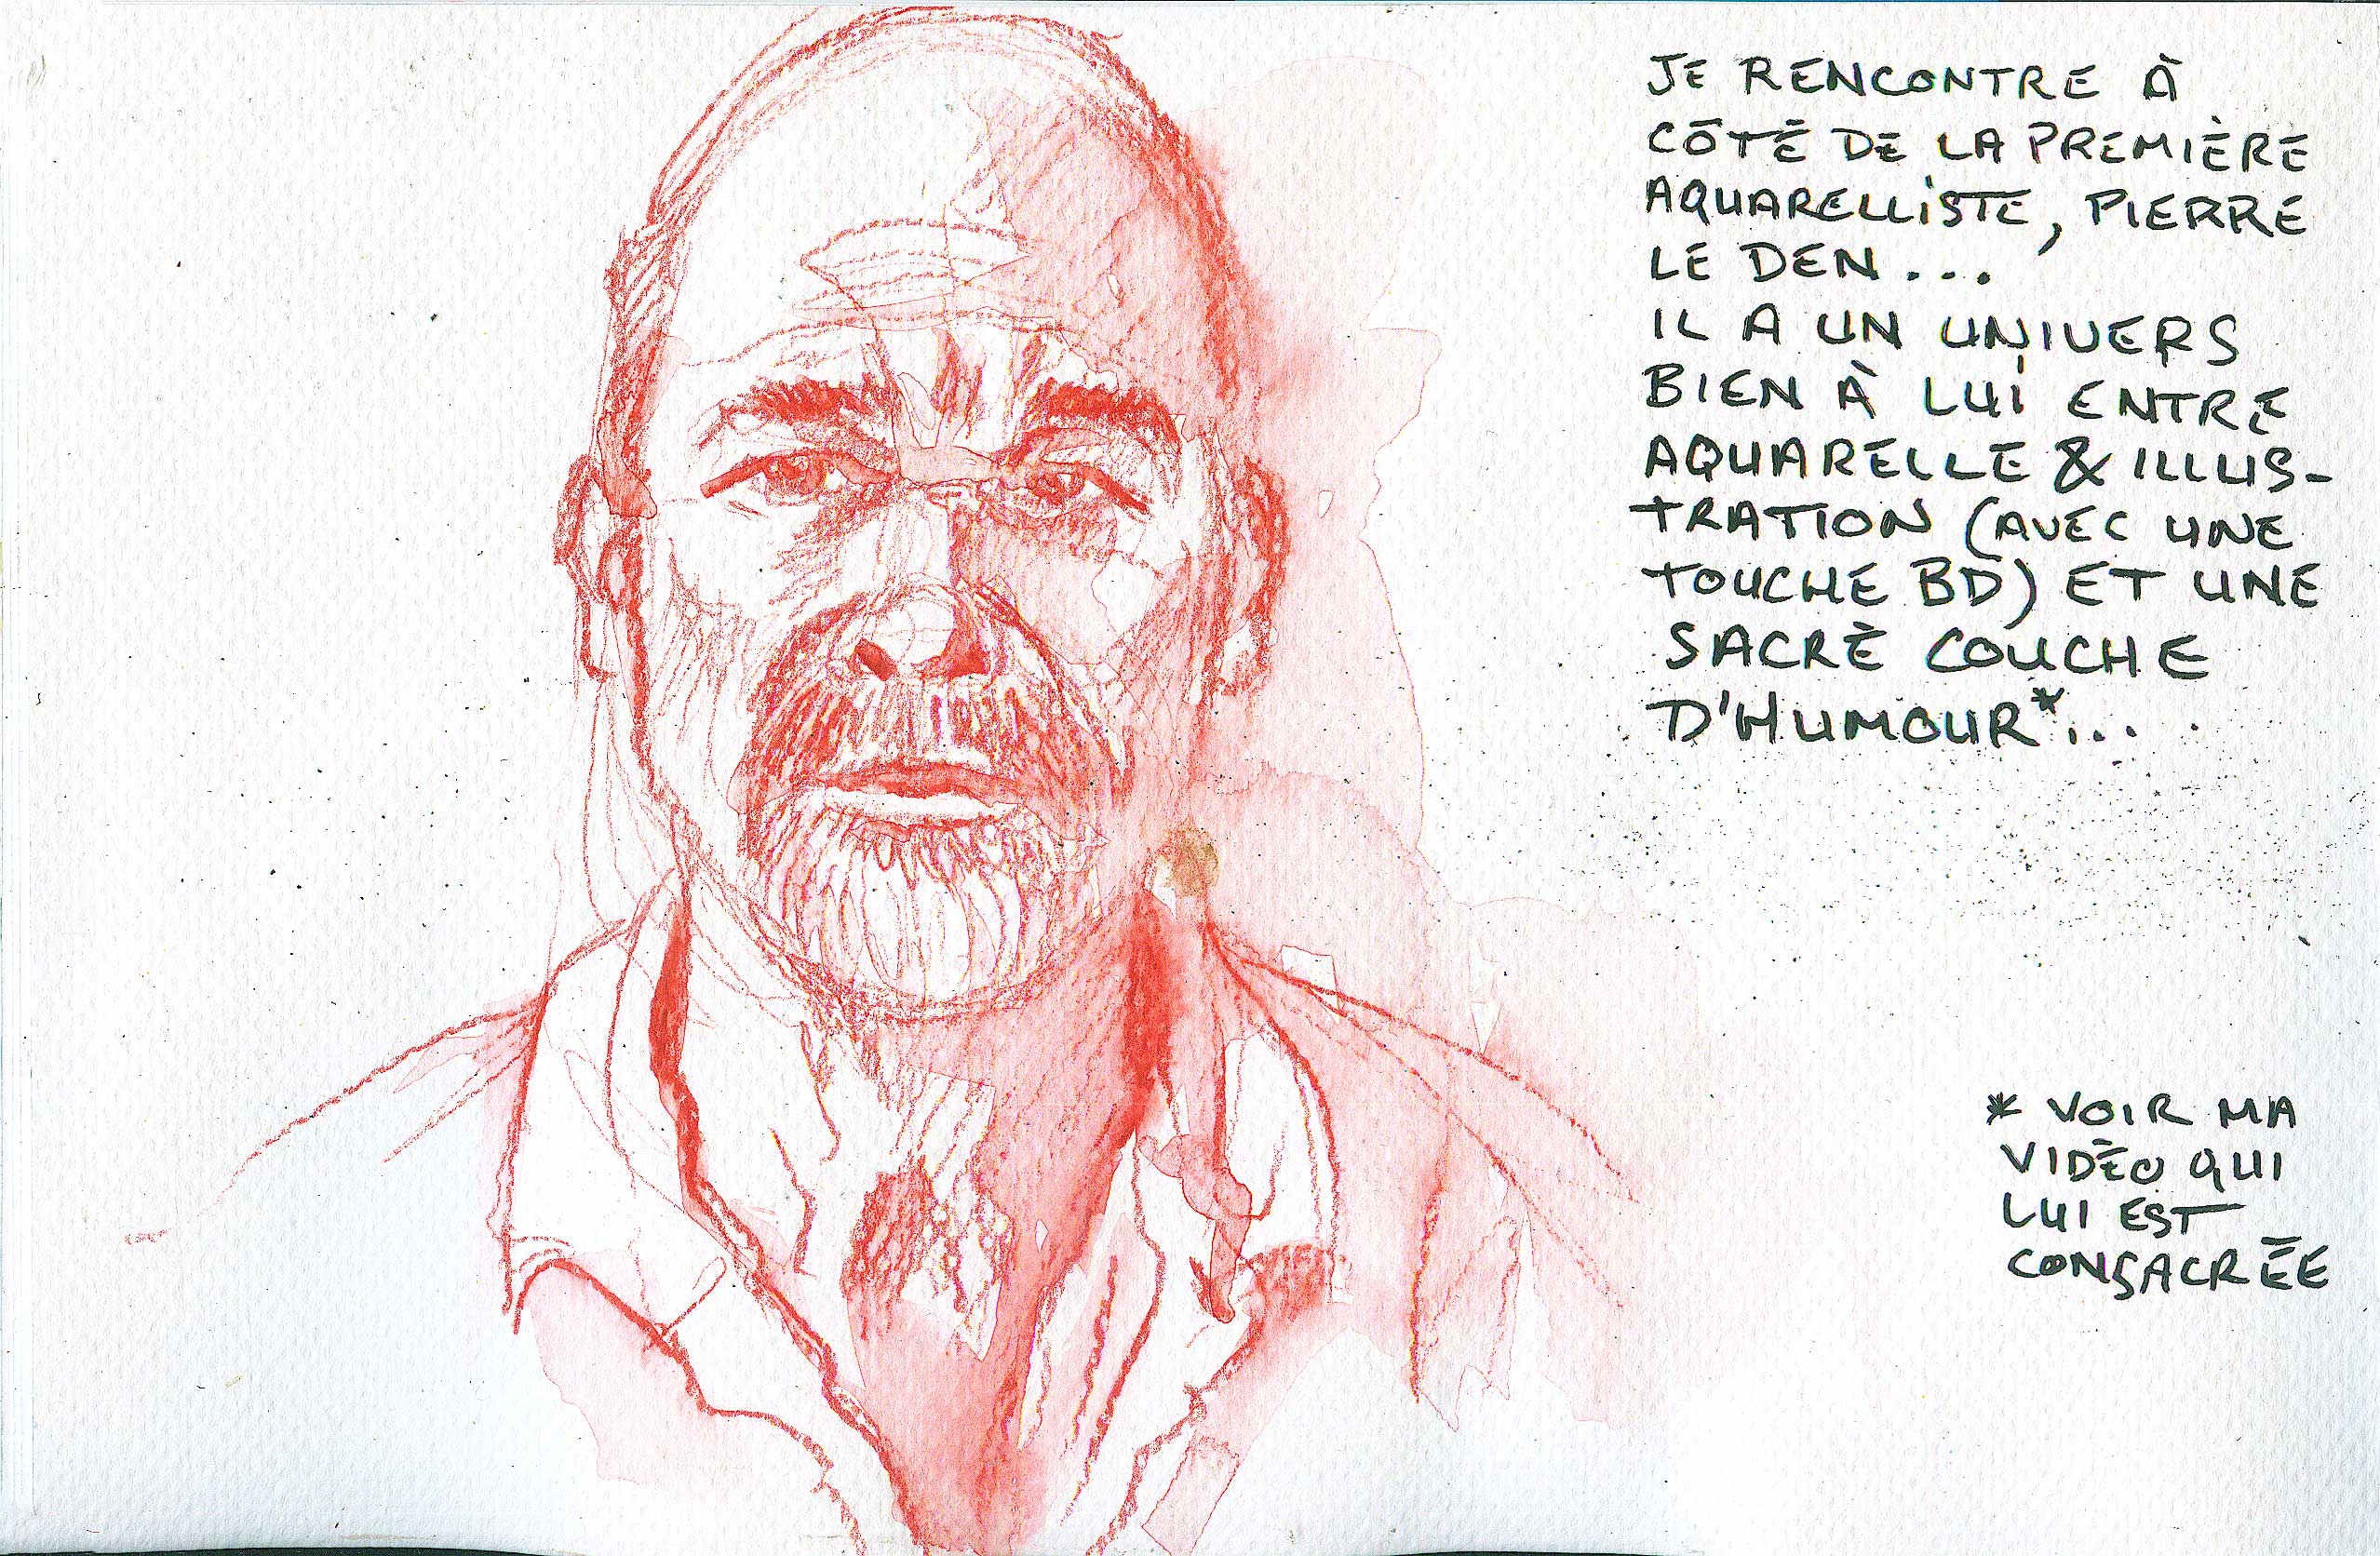 JE RENCONTRE À
CÔTÉ DE LA PREMIÈRE
AQUARELLISTE, PIERRE
LE DEN...
IL A UN UNIVERS
BIEN À LUI ENTRE
AQUARELLE & ILLUS-
TRATION (AVEC UNE
TOUCHE BD) ET UNE
SACRÉ COUCHE
D'HUMOUR*...
* VOIR MA
VIDÉO QUI
LUI EST
CONSACRÉE